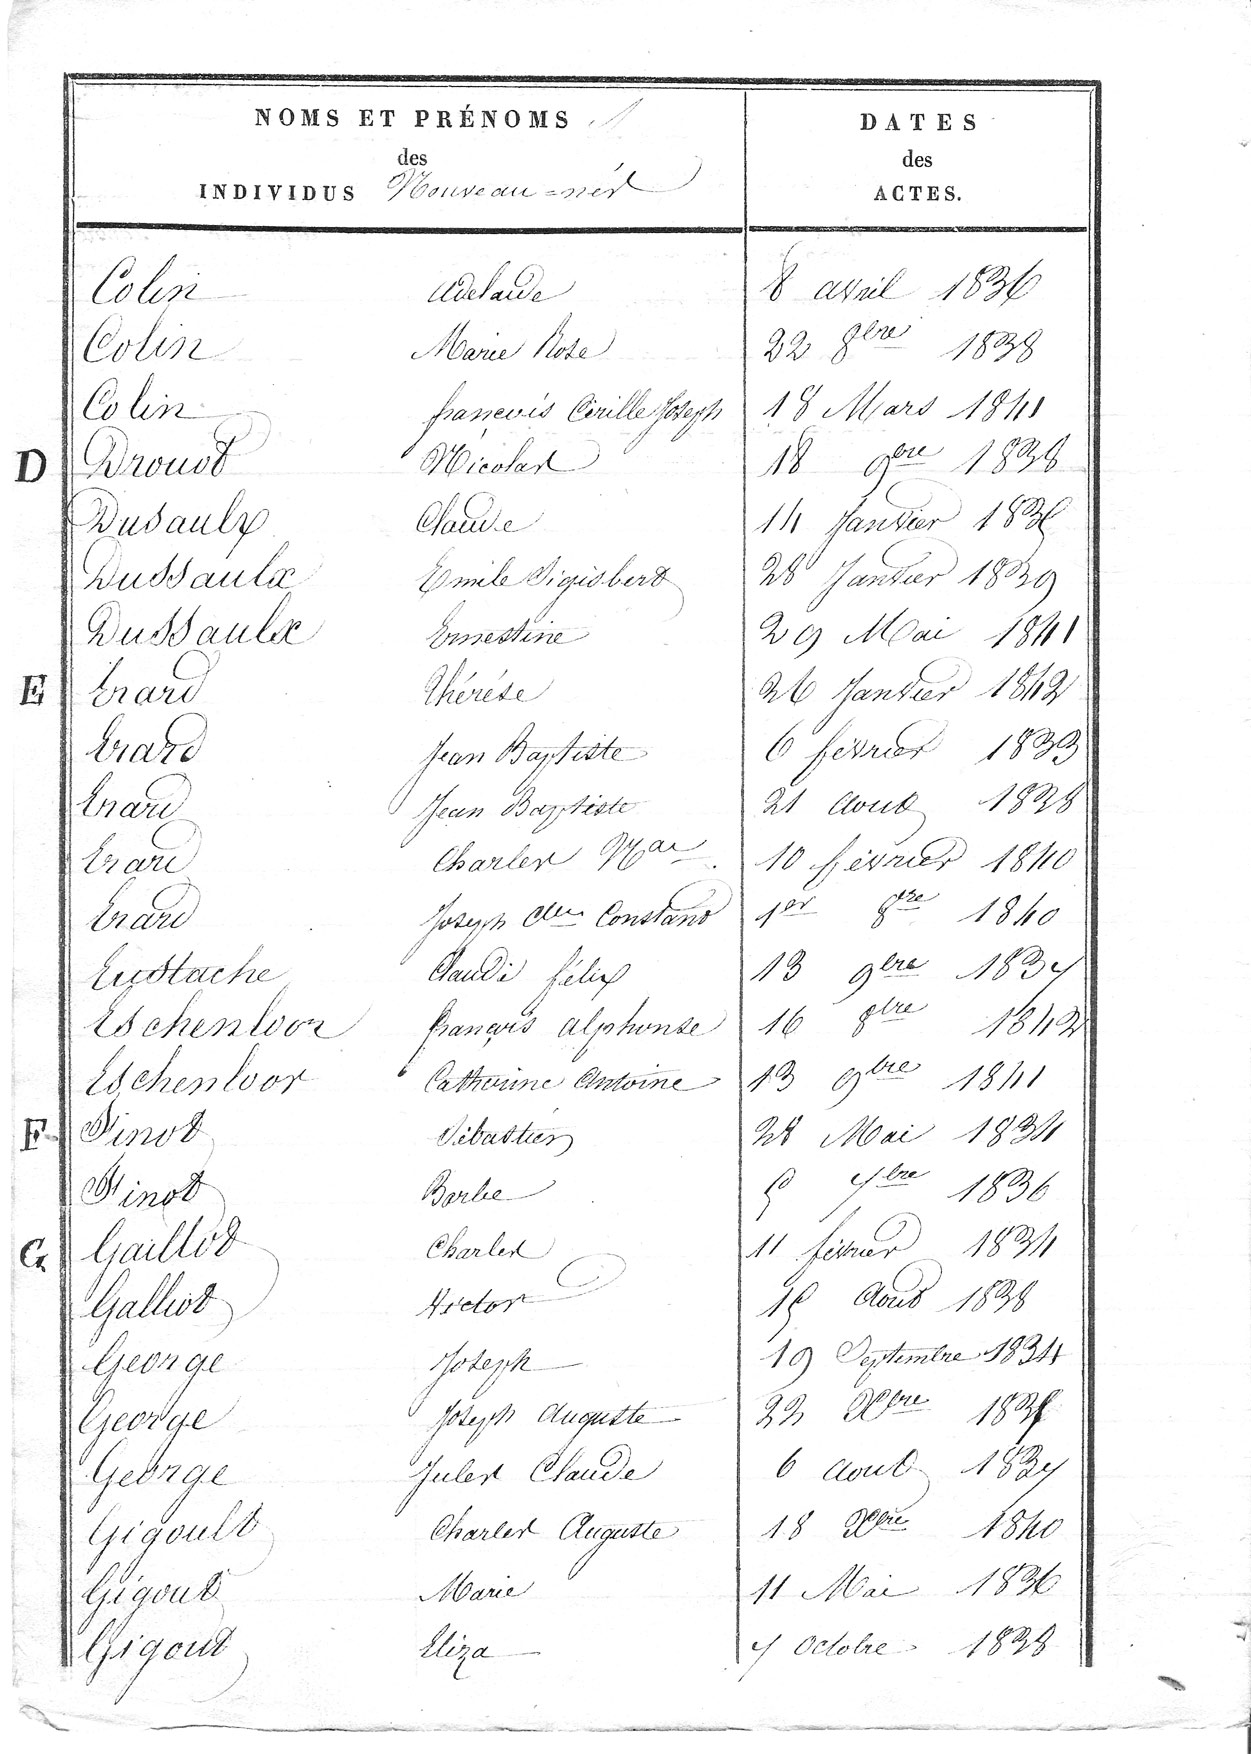 NOMS ET PRÉNOMS
des
INDIVIDUS Nouveau-nés
DATES
des
ACTES.
Colin Adelaide 8 avril 1836
Colin Marie Rose 22 8bre 1838
Colin françois Cirille Joseph 18 Mars 1841
D Drouot Nicolas 18 9bre 1838
Dusaulx Claude 14 Janvier 1836
Dussaulx Emile Sigisbert 28 Janvier 1839
Dussaulx Ernestine 29 Mai 1841
E Erard Thérése 26 Janvier 1842
Erard Jean Baptiste 6 février 1833
Erard Jean Baptiste 21 aout 1838
Erard Charles Nas 10 février 1840
Erard Joseph Constant 1er 8bre 1840
Eustache Claude félix 13 9bre 1837
Eschenloor françois alphonse 16 8bre 1842
Eschenloor Catherine Antoine 13 9bre 1841
F Finot Sébastien 28 Mai 1834
Finot Barbe 5 7bre 1836
G Gaillot Charles 11 février 1834
Galliot Victor 15 Aout 1838
George Joseph 19 Septembre 1834
George Joseph Auguste 22 Xbre 1835
George Jules Claude 6 aout 1837
Gigoult Charles Auguste 18 Xbre 1840
Gigout Marie 11 Mai 1836
Gigout Eliza 7 Octobre 1838